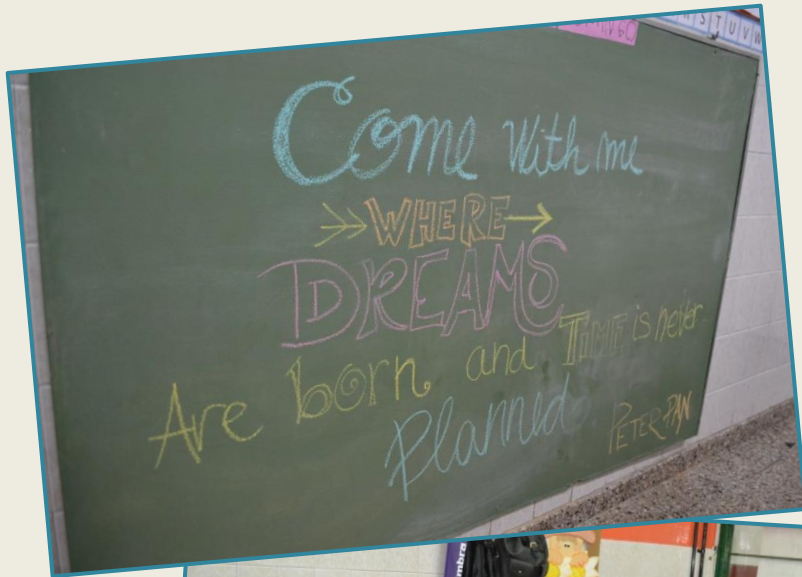 Come With me
WHERE
DREAMS
Are born and TIME is never
Planned
PETER PAN
S T U V W
mbra